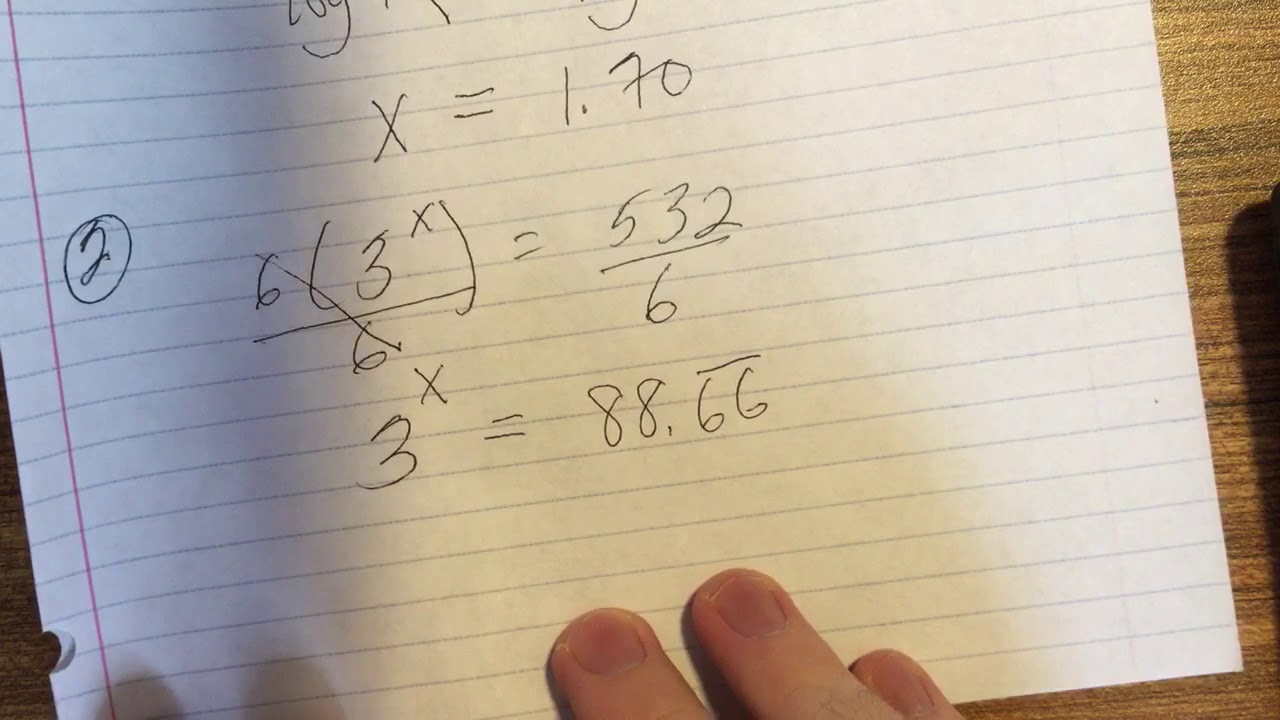 log
x = 1.70
② 6(3^x)/6 = 532/6
3^x = 88.6̅6̅